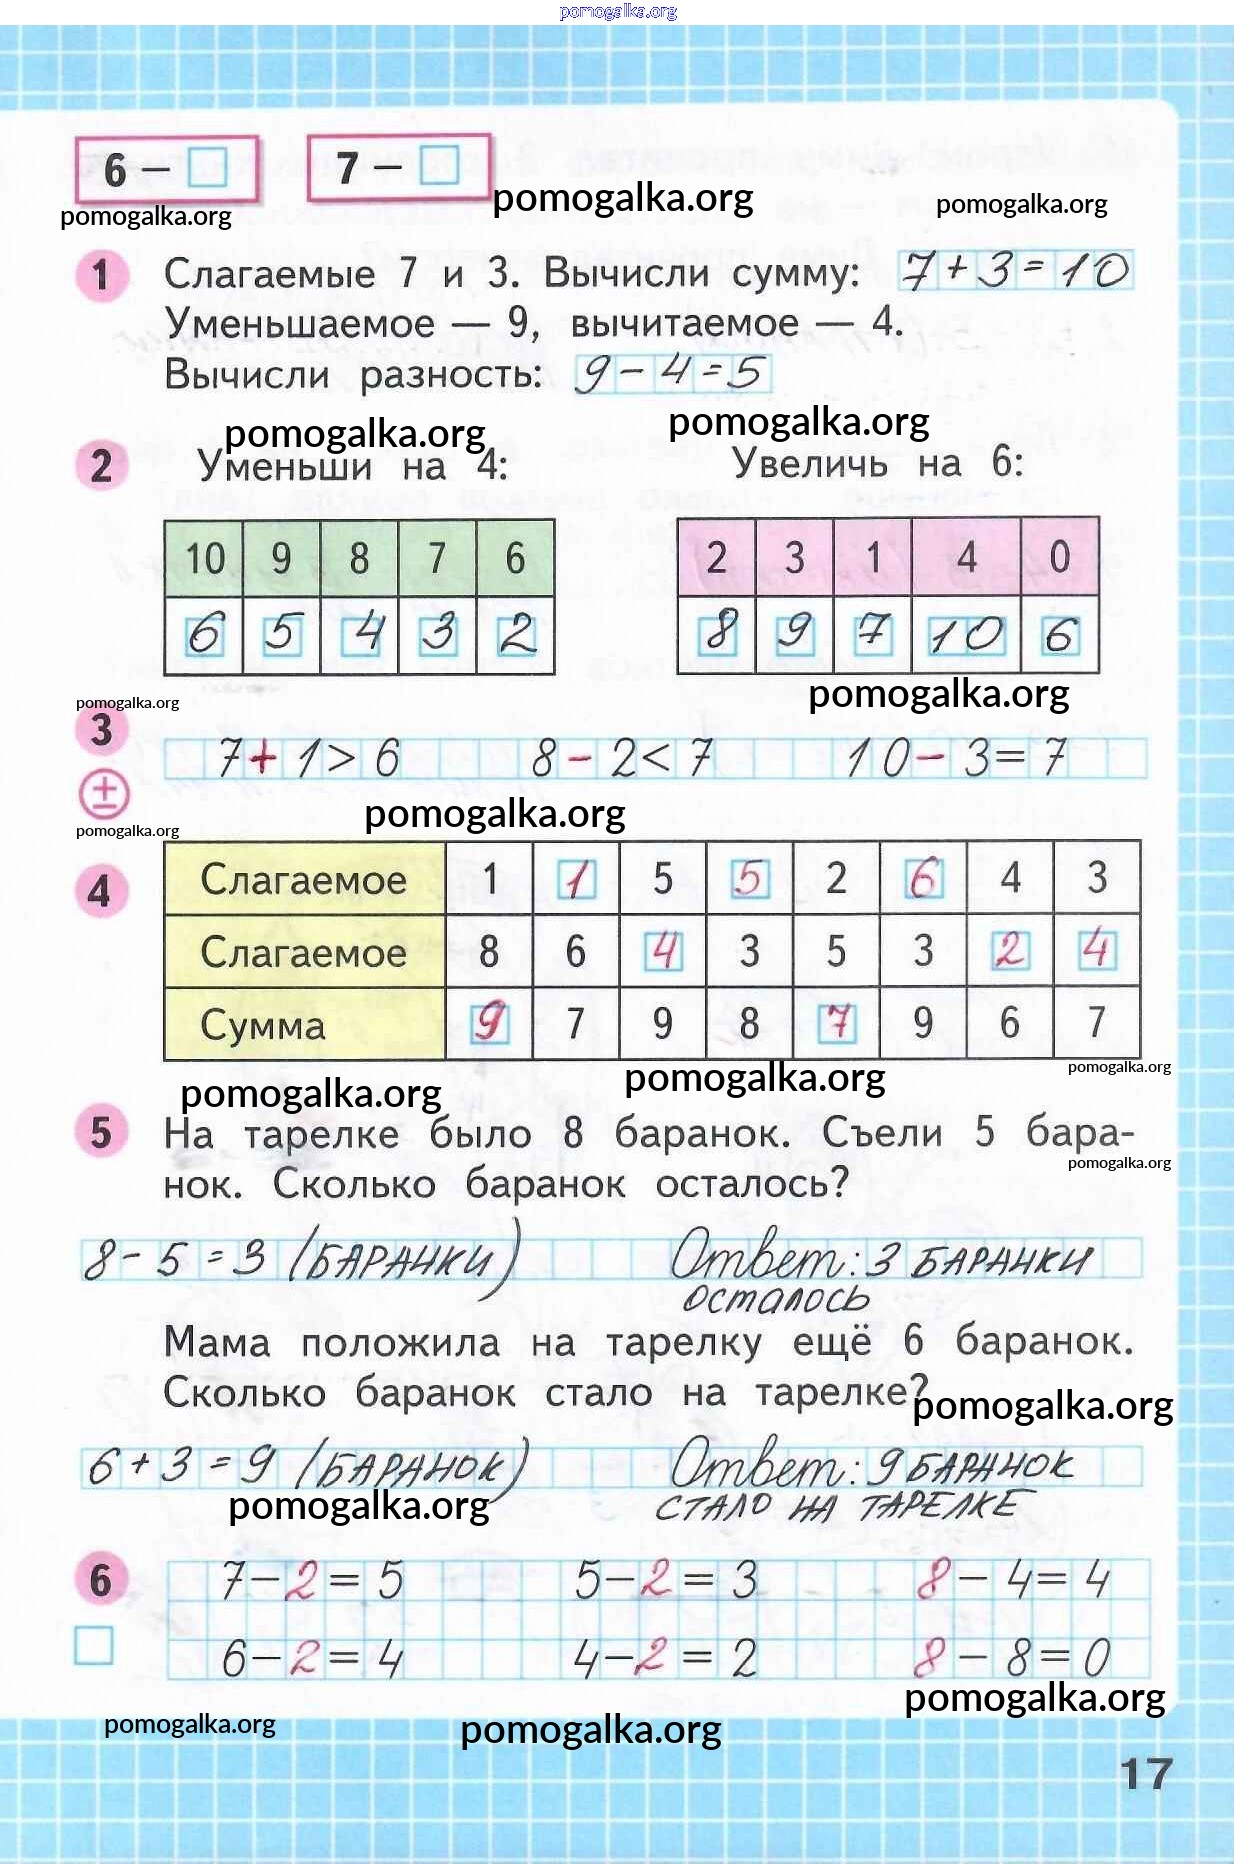 pomogalka.org
6 – □ 7 – □
pomogalka.org pomogalka.org pomogalka.org
1 Слагаемые 7 и 3. Вычисли сумму: 7+3=10
Уменьшаемое — 9, вычитаемое — 4.
Вычисли разность: 9-4=5
pomogalka.org pomogalka.org
2 Уменьши на 4: Увеличь на 6:
10 9 8 7 6 2 3 1 4 0
6 5 4 3 2 8 9 7 10 6
pomogalka.org pomogalka.org
3 7+1>6 8-2<7 10-3=7
±
pomogalka.org pomogalka.org
4 Слагаемое 1 1 5 5 2 6 4 3
Слагаемое 8 6 4 3 5 3 2 4
Сумма 9 7 9 8 7 9 6 7
pomogalka.org pomogalka.org pomogalka.org
5 На тарелке было 8 баранок. Съели 5 бара-
pomogalka.org
нок. Сколько баранок осталось?
8-5=3 (БАРАНКИ) Ответ: 3 БАРАНКИ
ОСТАЛОСЬ
Мама положила на тарелку ещё 6 баранок.
Сколько баранок стало на тарелке?
pomogalka.org
6+3=9 (БАРАНОК) Ответ: 9 БАРАНОК
СТАЛО НА ТАРЕЛКЕ
pomogalka.org
6 7-2=5 5-2=3 8-4=4
6-2=4 4-2=2 8-8=0
pomogalka.org
pomogalka.org pomogalka.org
17